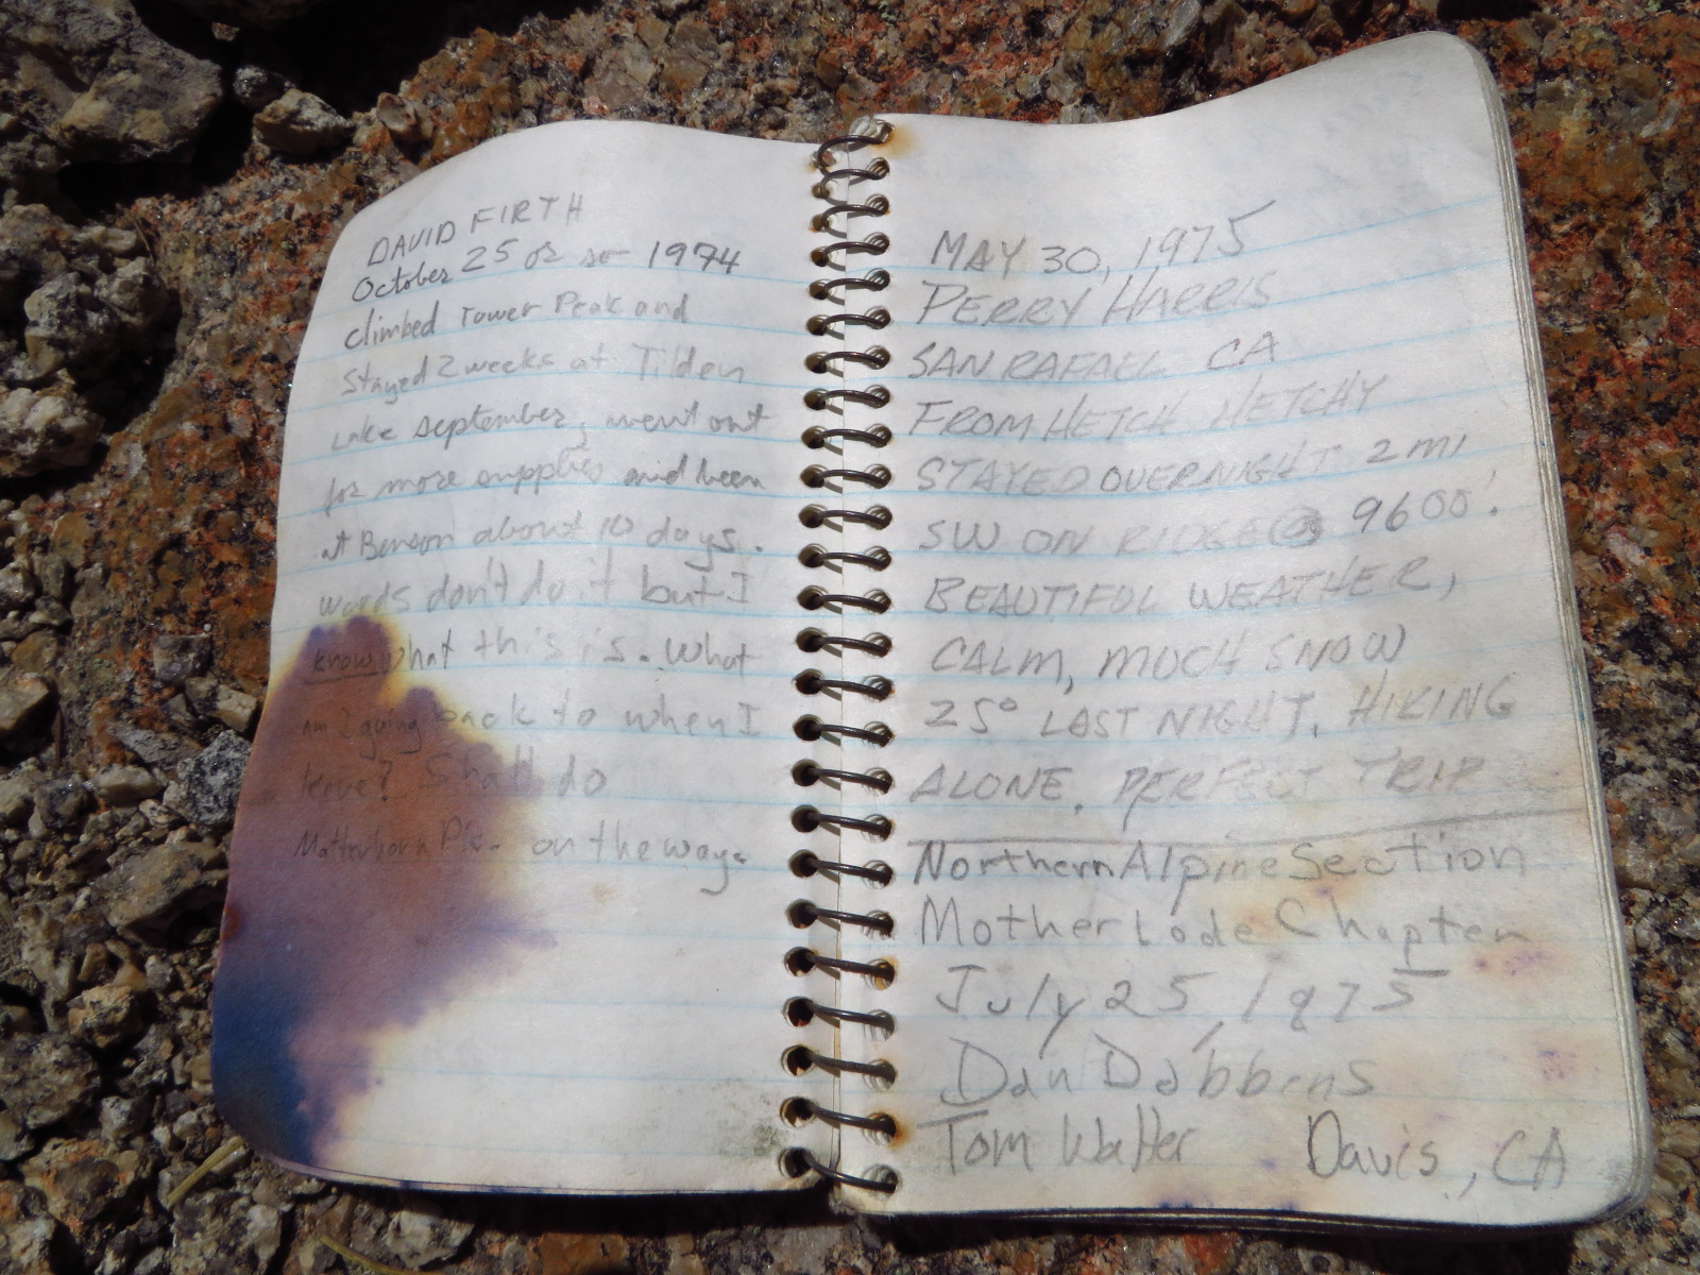 DAVID FIRTH
October 25 or so 1974
climbed Tower Peak and
stayed 2 weeks at Tilden
Lake september, went out
for more supplies and been
at Benson about 10 days.
words don't do it but I
know what this is. What
am I going back to when I
leave? Shall do
Matterborn Pk. on the way.
MAY 30, 1975
PERRY HARRIS
SAN RAFAEL CA
FROM HETCH HETCHY
STAYED OVERNIGHT 2 MI
SW ON RIDGE @ 9600'.
BEAUTIFUL WEATHER,
CALM, MUCH SNOW
25° LAST NIGHT. HIKING
ALONE. PERFECT TRIP
Northern Alpine Section
Mother Lode Chapter
July 25, 1975
Dan Dobbins
Tom Walter Davis, CA